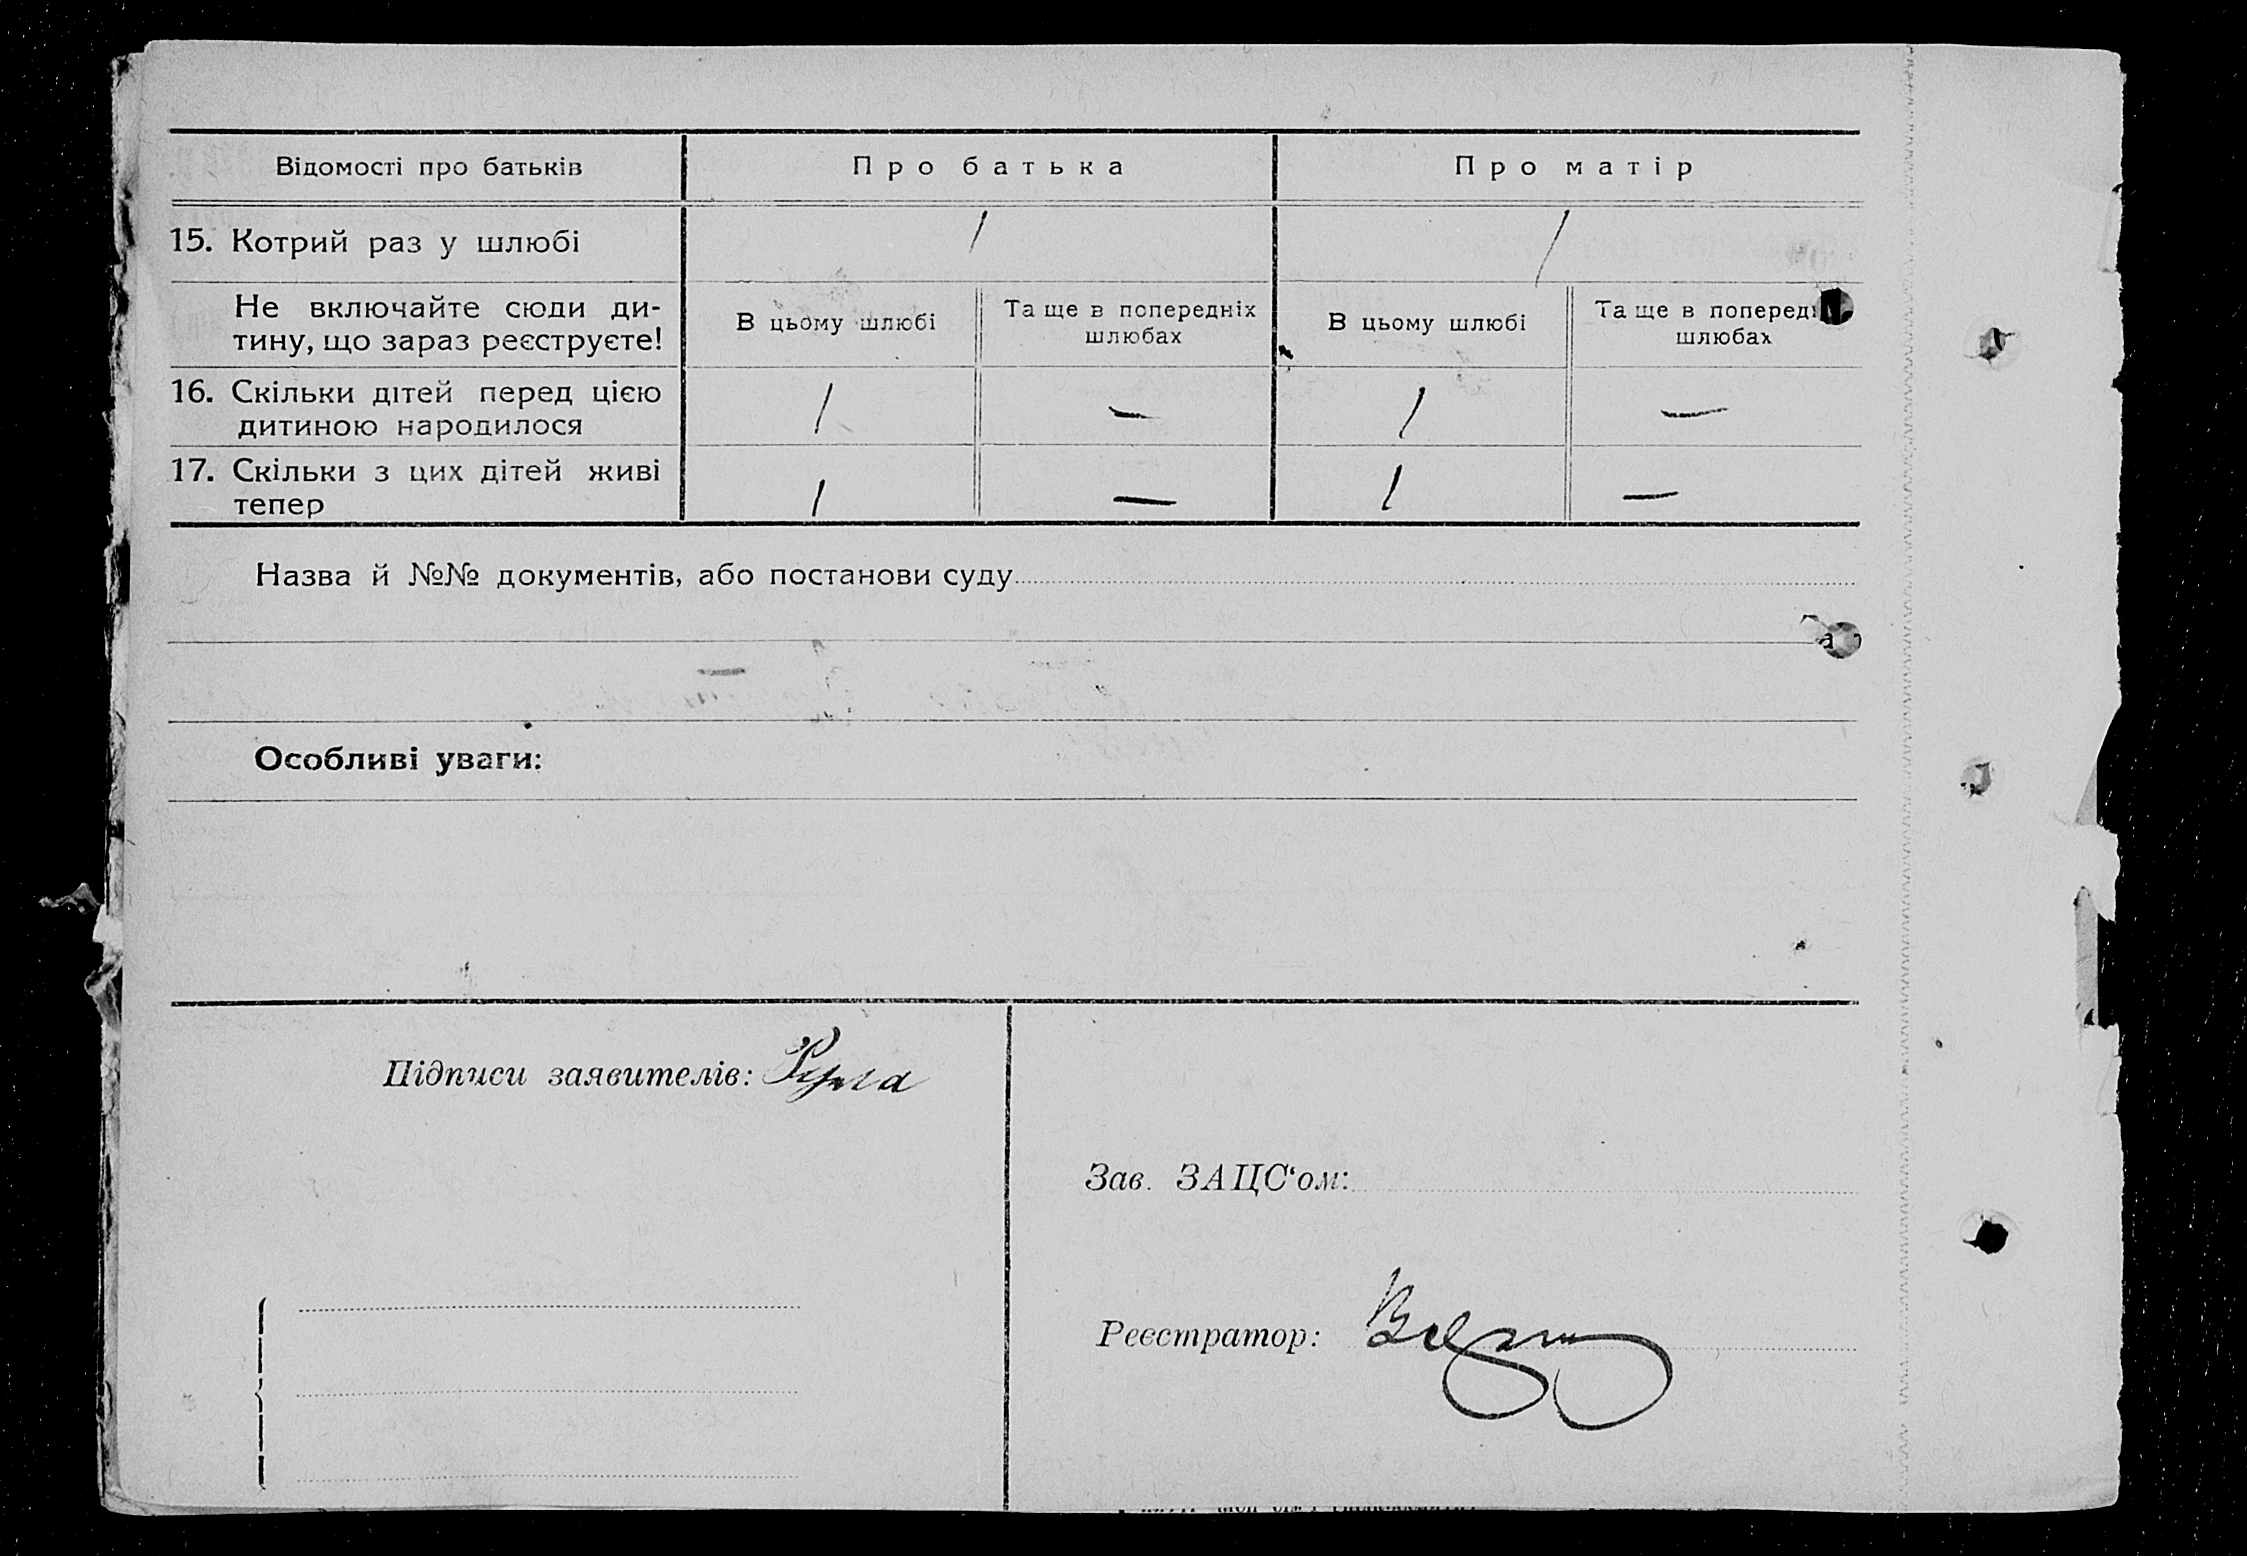 Відомості про батьків Про батька Про матір
15. Котрий раз у шлюбі 1 1
Не включайте сюди ди-
тину, що зараз реєструєте!
В цьому шлюбі Та ще в попередніх
шлюбах
В цьому шлюбі Та ще в поперед
шлюбах
16. Скільки дітей перед цією
дитиною народилося
1 — 1 —
17. Скільки з цих дітей живі
тепер
1 — 1 —
Назва й №№ документів, або постанови суду
—
Особливі уваги:
Підписи заявителів:
Зав. ЗАЦС‘ом:
Реєстратор: